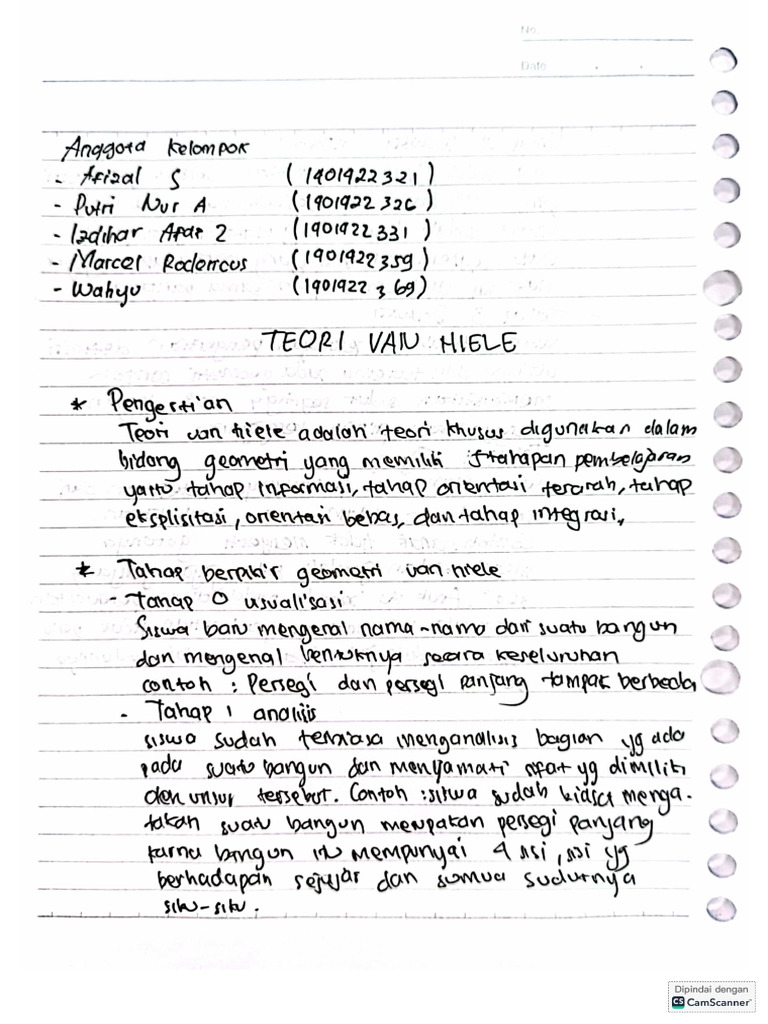 No.
Date
Anggota Kelompok
- Afizal S (1901922321)
- Putri Nur A (1901922326)
- Izdihar Afar Z (1901922331)
- Marcel Rodericus (1901922359)
- Wahyu (1901922369)
TEORI VAN HIELE
* Pengertian
Teori van hiele adalah teori khusus digunakan dalam
bidang geometri yang memiliki 5 tahapan pembelajaran
yaitu tahap informasi, tahap orientasi terarah, tahap
eksplisitasi, orientasi bebas, dan tahap integrasi,
* Tahap berpikir geometri van hiele
- Tahap 0 visualisasi
Siswa baru mengenal nama-nama dari suatu bangun
dan mengenal bentuknya secara keseluruhan
contoh : Persegi dan persegi panjang tampak berbeda,
- Tahap 1 analisis
siswa sudah terbiasa menganalisis bagian yg ada
pada suatu bangun dan menyamati sifat yg dimiliki
oleh unsur tersebut. Contoh : siswa sudah biasa menga-
takan suatu bangun merupakan persegi panjang
karna bangun itu mempunyai 4 sisi, sisi yg
berhadapan sejajar dan semua sudutnya
siku-siku.
Dipindai dengan
CS CamScanner